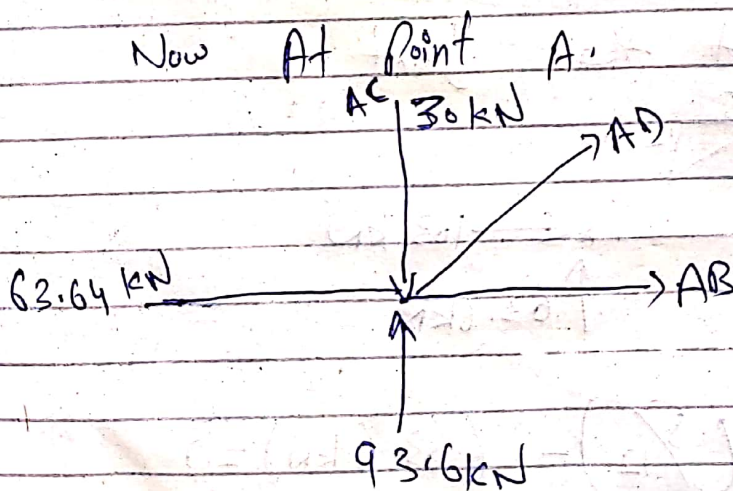 Now At Point A.
AC 30 kN
AD
63.64 kN
AB
93.6 kN